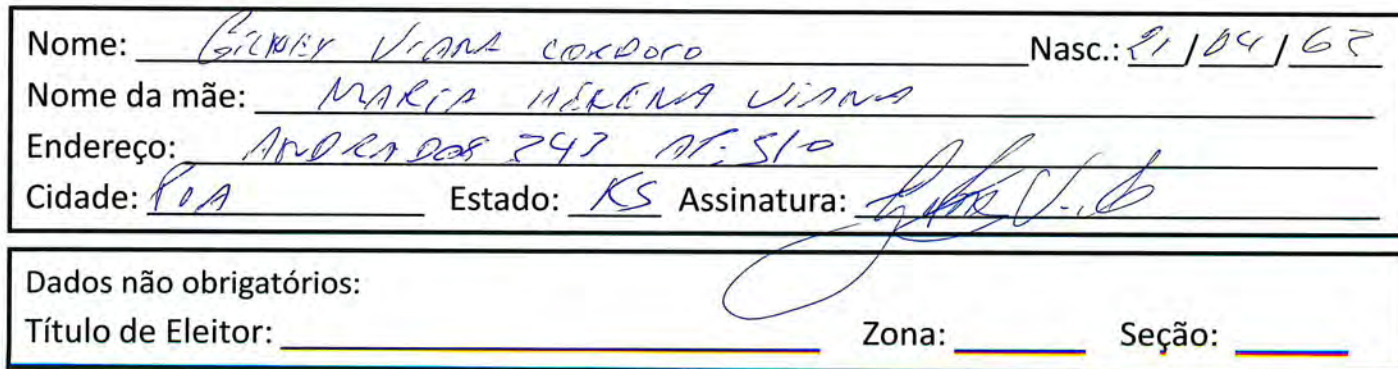 Nome: Viana Nasc.: 21/04/
Nome da mãe: MARIA HELENA VIANA
Endereço: ANDRADAS 343 AP. 510
Cidade: POA Estado: RS Assinatura:
Dados não obrigatórios:
Título de Eleitor: Zona: Seção: